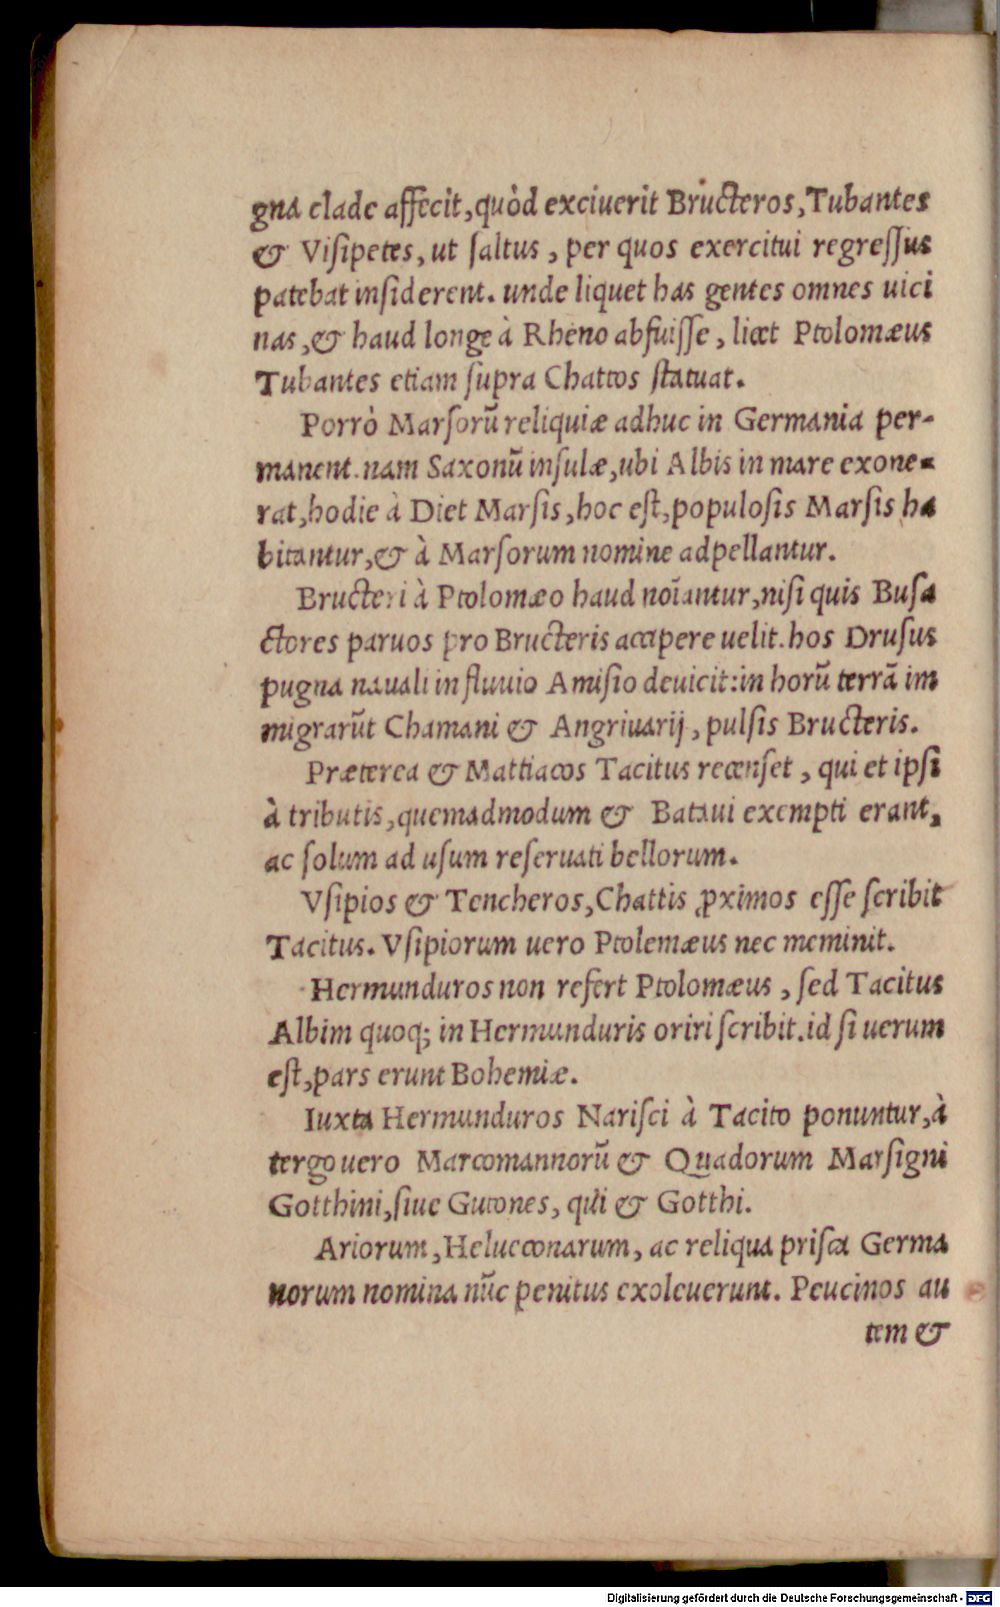 gna clade affecit, quòd exciuerit Bructeros, Tubantes
& Visipetes, ut saltus, per quos exercitui regressus
patebat insiderent. unde liquet has gentes omnes uici
nas, & haud longe à Rheno abfuisse, licet Ptolomæus
Tubantes etiam supra Chattos statuat.
Porrò Marsorũ reliquiæ adhuc in Germania per-
manent. nam Saxonũ insulæ, ubi Albis in mare exone-
rat, hodie à Diet Marsis, hoc est, populosis Marsis ha
bitantur, & à Marsorum nomine adpellantur.
Bructeri à Ptolomæo haud noĩantur, nisi quis Busa
ctores paruos pro Bructeris accipere uelit. hos Drusus
pugna nauali in fluuio Amisio deuicit: in horũ terrã im
migrarũt Chamani & Angriuarij, pulsis Bructeris.
Præterea & Mattiacos Tacitus recenset, qui et ipsi
à tributis, quemadmodum & Bataui exempti erant,
ac solum ad usum reseruati bellorum.
Vsipios & Tencheros, Chattis ꝓximos esse scribit
Tacitus. Vsipiorum uero Ptolemæus nec meminit.
Hermunduros non refert Ptolomæus, sed Tacitus
Albim quoq; in Hermunduris oriri scribit. id si uerum
est, pars erunt Bohemiæ.
Iuxta Hermunduros Narisci à Tacito ponuntur, à
tergo uero Marcomannorũ & Quadorum Marsigni
Gotthini, siue Gutones, qui & Gotthi.
Ariorum, Helueconarum, ac reliqua prisca Germa
norum nomina nũc penitus exoleuerunt. Peucinos au
tem &
Digitalisierung gefördert durch die Deutsche Forschungsgemeinschaft - DFG